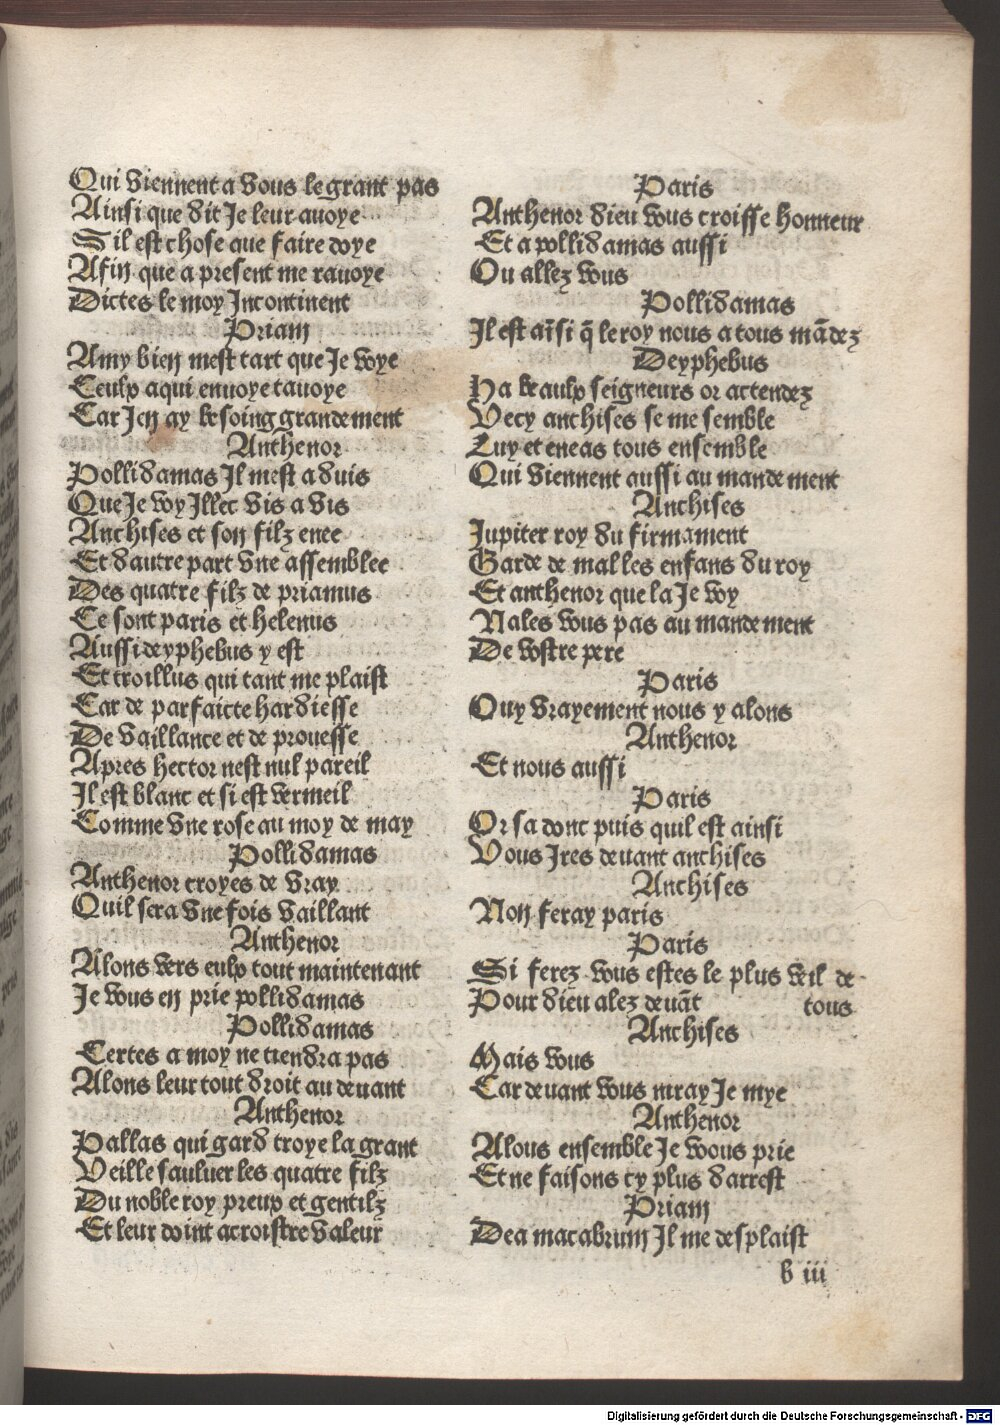 Qui viennent a vous le grant pas
Ainsi que dit Je leur auoye
Sil est chose que faire doye
Afin que a present me rauoye
Dictes le moy Incontinent
Priam
Amy bien mest tart que Je voye
Ceulx a qui enuoye tauoye
Car Jen ay besoing grandement
Anthenor
Pollidamas Il mest aduis
Que Je voy Illec vis a vis
Anchises et son filz enee
Et dautre part vne assemblee
Des quatre filz de priamus
Ce sont paris et helenus
Aussi deyphebus y est
Et troillus qui tant me plaist
Car de parfaicte hardiesse
De vaillance et de prouesse
Apres hector nest nul pareil
Il est blanc et si est vermeil
Comme vne rose au moy de may
Pollidamas
Anthenor croyes de vray
Quil sera vne fois vaillant
Anthenor
Alons vers eulx tout maintenant
Je vous en prie pollidamas
Pollidamas
Certes a moy ne tiendra pas
Alons leur tout droit au deuant
Anthenor
Pallas qui gard troye la grant
Veille sauluer les quatre filz
Du noble roy preux et gentilz
Et leur doint acroistre valeur
Paris
Anthenor dieu vous croisse honneur
Et a pollidamas aussi
Ou allez vous
Pollidamas
Il est aĩsi q̃ le roy nous a tous mãdez
Deyphebus
Ha beaulx seigneurs or actendez
Vecy anchises se me semble
Luy et eneas tous ensemble
Qui viennent aussi au mandement
Anchises
Jupiter roy du firmament
Garde de mal les enfans du roy
Et anthenor que la Je voy
Nales vous pas au mandement
De vostre pere
Paris
Ouy vrayement nous y alons
Anthenor
Et nous aussi
Paris
Or sa donc puis quil est ainsi
Vous Ires deuant anchises
Anchises
Non feray paris
Paris
Si ferez vous estes le plus veil de
Pour dieu alez deuãt tous
Anchises
Mais vous
Car deuant vous niray Je mye
Anthenor
Alons ensemble Je vous prie
Et ne faisons cy plus darrest
Priam
Dea macabrum Il me desplaist
b iii
Digitalisierung gefördert durch die Deutsche Forschungsgemeinschaft - DFG